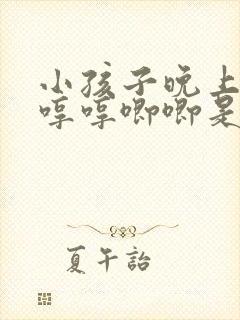 小孩子晚上
哼哼唧唧是
夏午詒